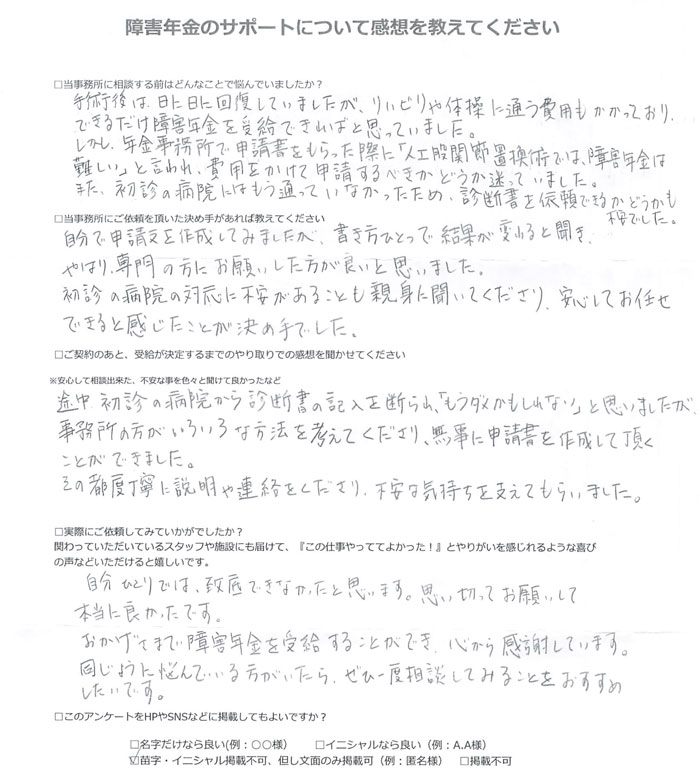 障害年金のサポートについて感想を教えてください
□当事務所に相談する前はどんなことで悩んでいましたか？
手術後は日に日に回復していましたが、リハビリや体操に通う費用もかかっており、
できるだけ障害年金を受給できればと思っていました。
しかし、年金事務所で申請書をもらった際に「人工股関節置換術では、障害年金は
難しい」と言われ、費用をかけて申請するべきかどうか迷っていました。
また、初診の病院にはもう通っていなかったため、診断書を依頼できるかどうかも
不安でした。
□当事務所にご依頼を頂いた決め手があれば教えてください
自分で申請文を作成してみましたが、書き方ひとつで結果が変わると聞き、
やはり、専門の方にお願いした方が良いと思いました。
初診の病院の対応に不安があることも親身に聞いてくださり、安心してお任せ
できると感じたことが決め手でした。
□ご契約のあと、受給が決定するまでのやり取りでの感想を聞かせてください
※安心して相談出来た、不安な事を色々と聞けて良かったなど
途中、初診の病院から診断書の記入を断られ、「もうダメかもしれない」と思いましたが、
事務所の方がいろいろな方法を考えてくださり、無事に申請書を作成して頂く
ことができました。
その都度丁寧に説明や連絡をくださり、不安な気持ちを支えてもらいました。
□実際にご依頼してみていかがでしたか？
関わっていただいているスタッフや施設にも届けて、『この仕事やっててよかった！』とやりがいを感じれるような喜び
の声などいただけると嬉しいです。
自分ひとりでは、到底できなかったと思います。思い切ってお願いして
本当に良かったです。
おかげさまで障害年金を受給することができ、心から感謝しています。
同じように悩んでいる方がいたら、ぜひ一度相談してみることをおすすめ
したいです。
□このアンケートをHPやSNSなどに掲載してもよいですか？
□名字だけなら良い(例：〇〇様) □イニシャルなら良い（例：A.A様）
☑苗字・イニシャル掲載不可、但し文面のみ掲載可（例：匿名様） □掲載不可